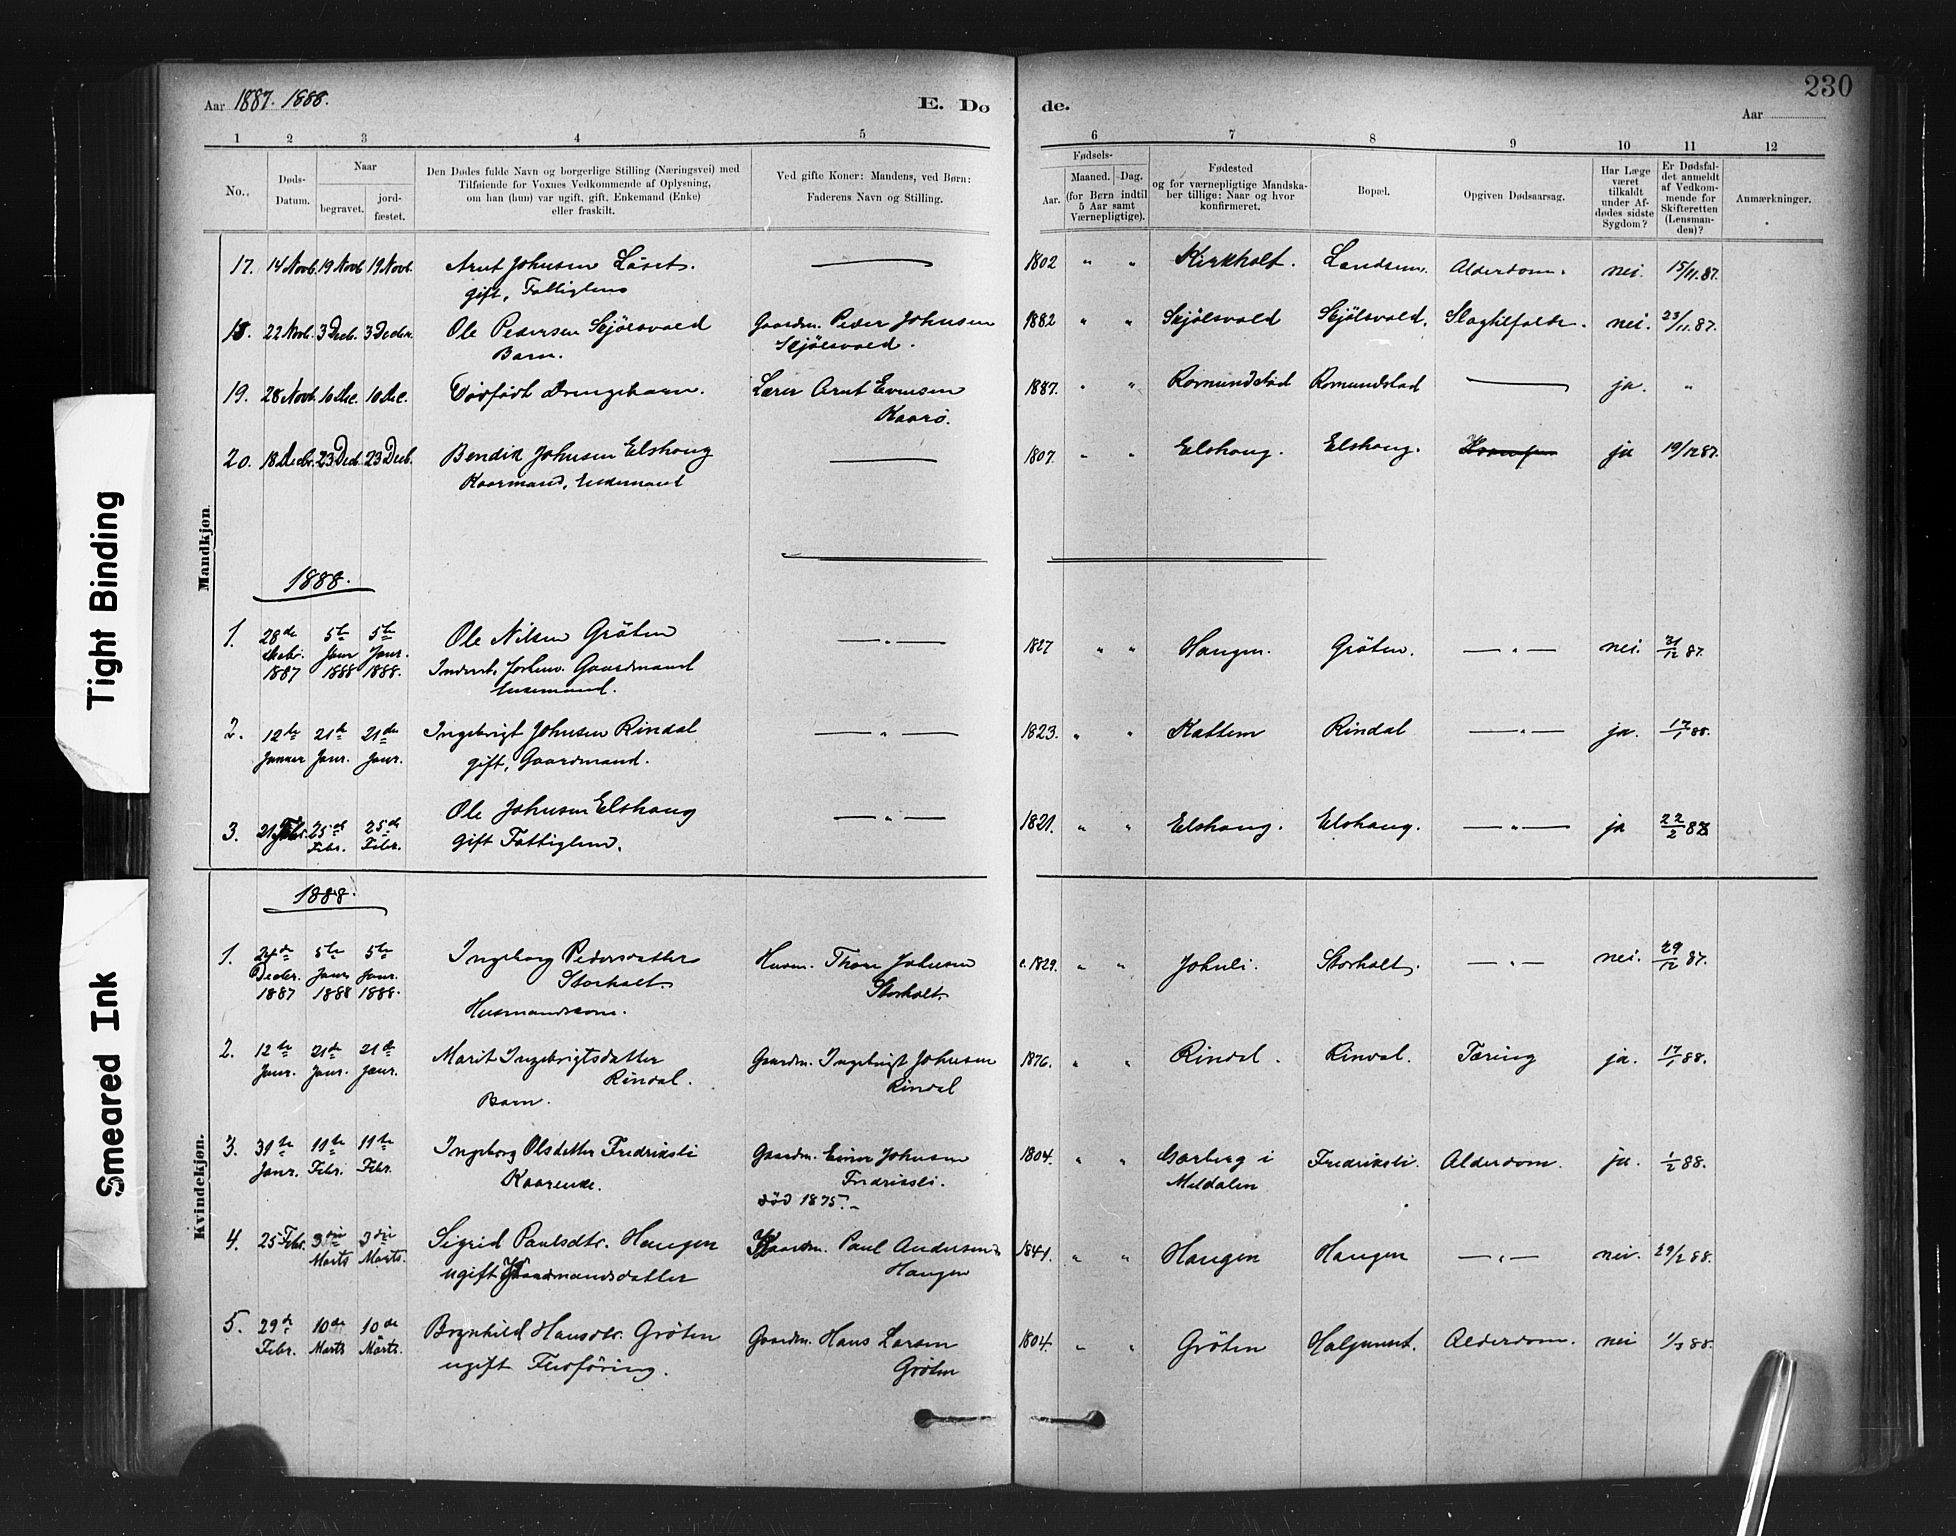 230
Aar 1887. 1888.
E. Dø
de.
Aar
1 2 3 4 5 6 7 8 9 10 11 12
No.
Døds-
Datum.
Naar
begravet.
jord-
fæstet.
Den Dødes fulde Navn og borgerlige Stilling (Næringsvei) med
Tilføiende for Voxnes Vedkommende af Oplysning,
om han (hun) var ugift, gift, Enkemand (Enke)
eller fraskilt.
Ved gifte Koner: Mandens, ved Børn:
Faderens Navn og Stilling.
Fødsels-
Aar.
Maaned. Dag.
(for Børn indtil
5 Aar samt
Værnepligtige).
Fødested
og for værnepligtige Mandska-
ber tillige: Naar og hvor
konfirmeret.
Bopæl.
Opgiven Dødsaarsag.
Har Læge
været
tilkaldt
under Af-
dødes sidste
Sygdom?
Er Dødsfal-
det anmeldt
af Vedkom-
mende for
Skifteretten
(Lensman-
den)?
Anmærkninger.
Mandkjøn
17. 14 Novb. 19 Novb. 19 Novb. Arnt Johnsen Løset. 1802 " " Kirkholt. Landsem. Alderdom. nei. 15/11.87.
gift, Fattiglem
18. 22 Novb. 3 Decb. 3 Decbr. Ole Pedersen Skjølsvold Gaardm. Peder Johnsen 1882 " " Skjølsvold Skjølsvold. Slagtilfælde. nei. 23/11.87.
Barn. Skjølsvold.
19. 28 Novb. 10 Dec. 10 Dec. Dødfødt Drengebarn. Lærer Arnt Evensen 1887. " " Romundstad Romundstad ja. "
Kaarø.
20. 18 Decbr. 23 Decb. 23 Decb. Bendik Johnsen Elshaug 1807. " " Elshaug. Elshaug. ja 19/12 87.
Kaarmand, Enkemand
1888.
1. 28de 5te 5te Ole Nilsen Grøten 1827 " " Haugen. Grøten. — " — nei. 31/12 87.
Decbr. Janr. Janr. Inderst, forhenv. Gaardmand
1887 1888 1888. Enkemand.
2. 12te 21de 21de Ingebrigt Johnsen Rindal 1823. " " Kattem Rindal — " — ja. 17/1 88.
Januar Janr. Janr. gift, Gaardmand.
3. 21 Febr. 25de 25de Ole Johnsen Elshaug 1821. " " Elshaug. Elshaug. — " — ja 22/2 88
Febr. Febr. gift Fattiglem.
Kvindekjøn.
1888.
1. 24de 5te 5te Ingeborg Pedersdatter Husm. Thore Johnsen c. 1829. " " Johnli. Storholt. — " — nei. 29/12 87.
Decbr. Janr Janr. Storholt. Storholt.
1887 1888 1888. Husmandskone.
2. 12te 21de 21de Marit Ingebrigtsdatter Gaardm. Ingebrigt Johnsen 1876. " " Rindal. Rindal. Tæring ja. 17/1 88.
Janr. Janr. Janr. Rindal. Rindal
Barn.
3. 31te 11te 11te Ingeborg Olsdatter Fredriksli Gaardm. Einar Johnsen 1804. " " Garberg i Fredriksli. Alderdom. ja. 1/2 88.
Janr. Febr. Febr. Kaarenke. Fredriksli. Meldalen
død 1875.
4. 25 Febr. 3die 3die Sigrid Paulsdtr. Haugen Kaardm. Paul Andersen 1841. " " Haugen Haugen — " — nei. 29/2 88.
Marts Marts. ugift Kaardmandsdatter Haugen
5. 29de 10de 10de Brynhild Hansdtr. Grøten Gaardm. Hans Larsen 1804. " " Grøten Halgunset. Alderdom. nei 1/3 88.
Febr. Marts Marts. ugift Flodføring. Grøten
Tight Binding
Smeared Ink